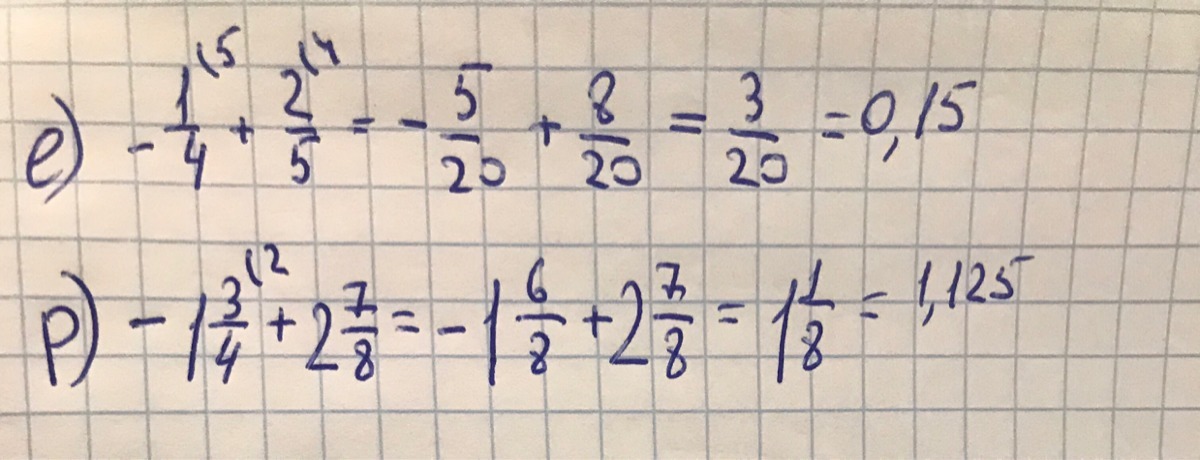 е) - 1/4 ⁽⁵ + 2/5 ⁽⁴ = - 5/20 + 8/20 = 3/20 = 0,15
р) - 1 3/4 ⁽² + 2 7/8 = - 1 6/8 + 2 7/8 = 1 1/8 = 1,125